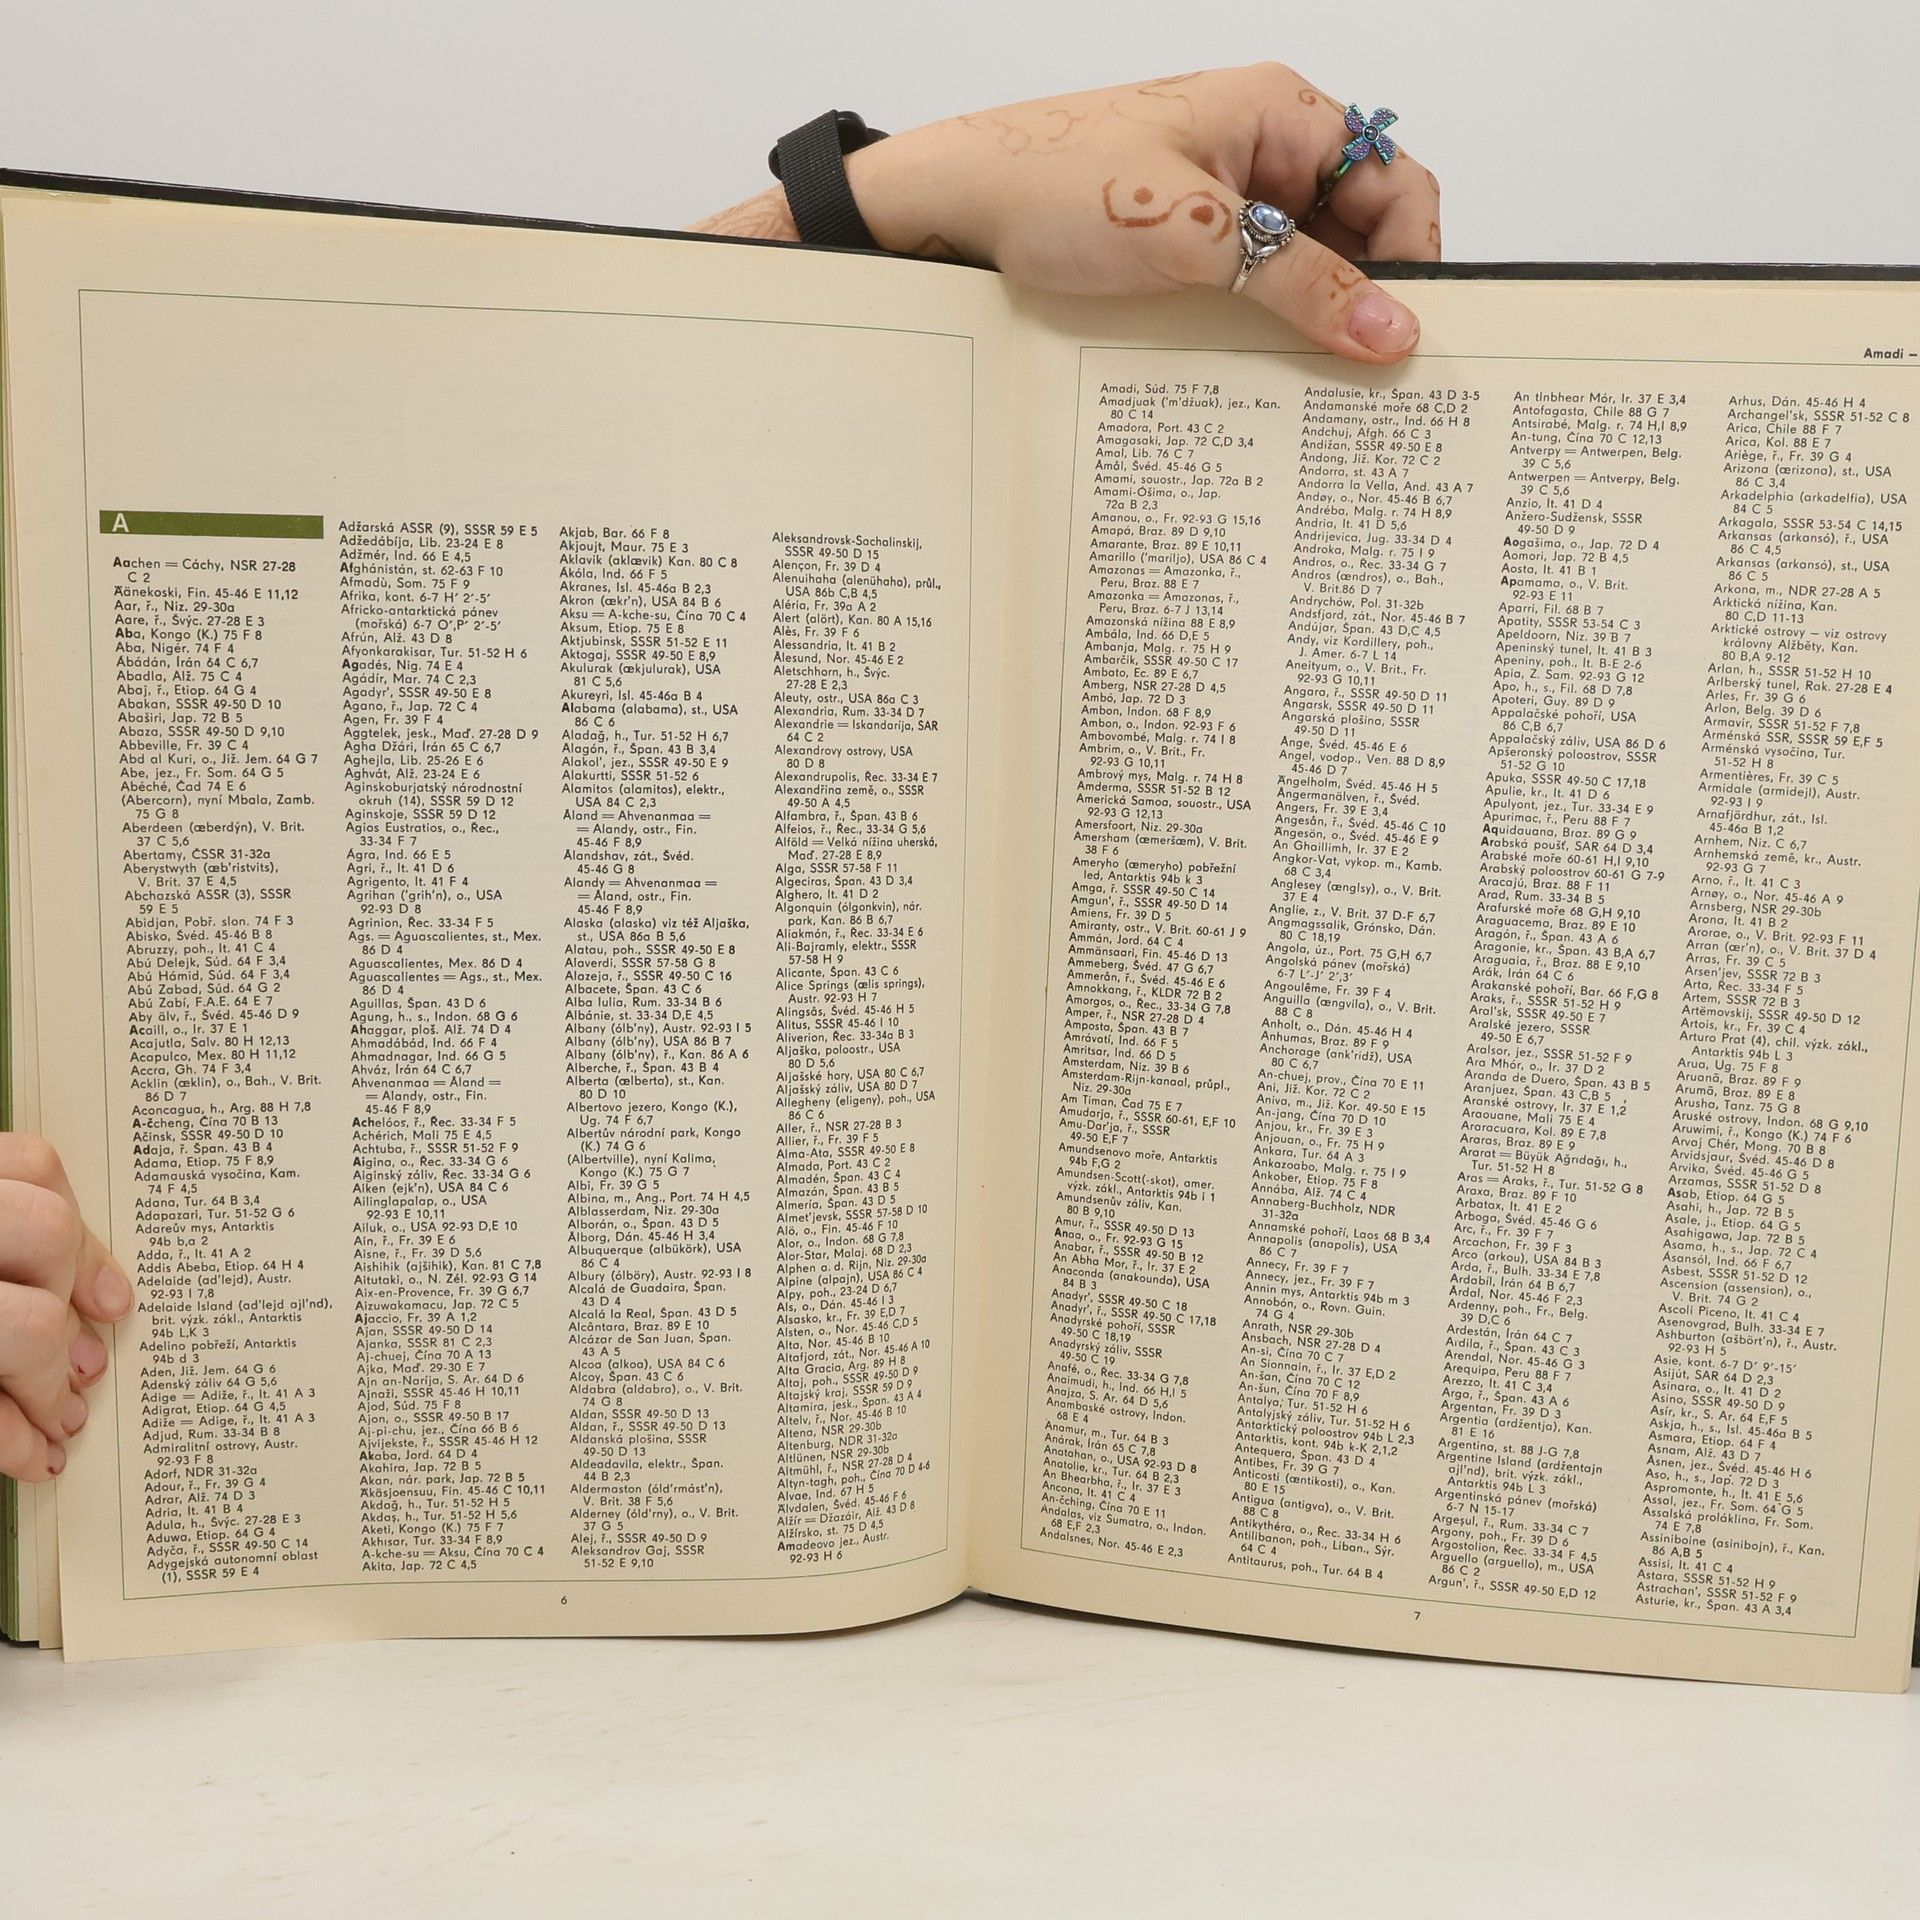 A
Aachen = Cáchy, NSR 27-28
C 2
Äänekoski, Fin. 45-46 E 11,12
Aar, ř., Niz. 29-30a
Aare, ř., Švýc. 27-28 E 3
Aba, Kongo (K.) 75 F 8
Aba, Nigér. 74 F 4
Ábádán, Írán 64 C 6,7
Abadla, Alž. 75 C 4
Abaj, ř., Etiop. 64 G 4
Abakan, SSSR 49-50 D 10
Abaširi, Jap. 72 B 5
Abaza, SSSR 49-50 D 9,10
Abbeville, Fr. 39 C 4
Abd al Kuri, o., Již. Jem. 64 G 7
Abe, jez., Fr. Som. 64 G 5
Abéché, Čad 74 E 6
(Abercorn), nyní Mbala, Zamb.
75 G 8
Aberdeen (æberdýn), V. Brit.
37 C 5,6
Abertamy, ČSSR 31-32a
Aberystwyth (æb'ristvits),
V. Brit. 37 E 4,5
Abchazská ASSR (3), SSSR
59 E 5
Abidjan, Pobř. slon. 74 F 3
Abisko, Švéd. 45-46 B 8
Abruzzy, poh., It. 41 C 4
Abú Delejk, Súd. 64 F 3,4
Abú Hámid, Súd. 64 F 3,4
Abú Zabad, Súd. 64 G 2
Abú Zabí, F.A.E. 64 E 7
Aby älv, ř., Švéd. 45-46 D 9
Acaill, o., Ir. 37 E 1
Acajutla, Salv. 80 H 12,13
Acapulco, Mex. 80 H 11,12
Accra, Gh. 74 F 3,4
Acklin (æklin), o., Bah., V. Brit.
86 D 7
Aconcagua, h., Arg. 88 H 7,8
A-čcheng, Čína 70 B 13
Ačinsk, SSSR 49-50 D 10
Adaja, ř. Špan. 43 B 4
Adama, Etiop. 75 F 8,9
Adamauská vysočina, Kam.
74 F 4,5
Adana, Tur. 64 B 3,4
Adapazari, Tur. 51-52 G 6
Adareův mys, Antarktis
94b b,a 2
Adda, ř., It. 41 A 2
Addis Abeba, Etiop. 64 H 4
Adelaide (ad'lejd), Austr.
92-93 I 7,8
Adelaide Island (ad'lejd ajl'nd),
brit. výzk. zákl., Antarktis
94b L,K 3
Adelino pobřeží, Antarktis
94b d 3
Aden, Již. Jem. 64 G 6
Adenský záliv 64 G 5,6
Adige = Adiže, ř., It. 41 A 3
Adigrat, Etiop. 64 G 4,5
Adiže = Adige, ř., It. 41 A 3
Adjud, Rum. 33-34 B 8
Admiralitní ostrovy, Austr.
92-93 F 8
Adorf, NDR 31-32a
Adour, ř., Fr. 39 G 4
Adrar, Alž. 74 D 3
Adria, It. 41 B 4
Adula, h., Švýc. 27-28 E 3
Aduwa, Etiop. 64 G 4
Adyča, ř., SSSR 49-50 C 14
Adygejská autonomní oblast
(1), SSSR 59 E 4
Adžarská ASSR (9), SSSR 59 E 5
Adžedábíja, Lib. 23-24 E 8
Adžmér, Ind. 66 E 4,5
Afghánistán, st. 62-63 F 10
Afmadù, Som. 75 F 9
Afrika, kont. 6-7 H' 2'-5'
Africko-antarktická pánev
(mořská) 6-7 O',P' 2'-5'
Afrún, Alž. 43 D 8
Afyonkarakisar, Tur. 51-52 H 6
Agadés, Nig. 74 E 4
Agádír, Mar. 74 C 2,3
Agadyr', SSSR 49-50 E 8
Agano, ř., Jap. 72 C 4
Agen, Fr. 39 F 4
Aggtelek, jesk., Maď. 27-28 D 9
Agha Džári, Írán 65 C 6,7
Aghejla, Lib. 25-26 E 6
Aghvát, Alž. 23-24 E 6
Aginskoburjatský národnostní
okruh (14), SSSR 59 D 12
Aginskoje, SSSR 59 D 12
Agios Eustratios, o., Řec.,
33-34 F 7
Ágra, Ind. 66 E 5
Agri, ř., It. 41 D 6
Agrigento, It. 41 F 4
Agrihan ('grih'n), o., USA
92-93 D 8
Agrinion, Řec. 33-34 F 5
Ags. = Aguascalientes, st., Mex.
86 D 4
Aguascalientes, Mex. 86 D 4
Aguascalientes = Ags., st., Mex.
86 D 4
Aguillas, Špan. 43 D 6
Agung, h., s., Indon. 68 G 6
Ahaggar, ploš. Alž. 74 D 4
Ahmadábád, Ind. 66 F 4
Ahmadnagar, Ind. 66 G 5
Ahváz, Írán 64 C 6,7
Ahvenanmaa = Åland =
= Alandy, ostr., Fin.
45-46 F 8,9
Achelóos, ř., Řec. 33-34 F 5
Achérich, Mali 75 E 4,5
Achtuba, ř., SSSR 51-52 F 9
Aigina, o., Řec. 33-34 G 6
Aiginský záliv, Řec. 33-34 G 6
Aiken (ejk'n), USA 84 C 6
Ailinglapalap, o., USA
92-93 E 10,11
Ailuk, o., USA 92-93 D,E 10
Ain, ř., Fr. 39 E 6
Aisne, ř., Fr. 39 D 5,6
Aishihik (ajšihik), Kan. 81 C 7,8
Aitutaki, o., N. Zél. 92-93 G 14
Aix-en-Provence, Fr. 39 G 6,7
Aizuwakamacu, Jap. 72 C 5
Ajaccio, Fr. 39 A 1,2
Ajan, SSSR 49-50 D 14
Ajanka, SSSR 81 C 2,3
Aj-chuej, Čína 70 A 13
Ajka, Maď. 29-30 E 7
Ajn an-Naríja, S. Ar. 64 D 6
Ajnaži, SSSR 45-46 H 10,11
Ajod, Súd. 75 F 8
Ajon, o., SSSR 49-50 B 17
Aj-pi-chu, jez., Čína 66 B 6
Ajvijekste, ř., SSSR 45-46 H 12
Akaba, Jord. 64 D 4
Akahira, Jap. 72 B 5
Akan, nár. park, Jap. 72 B 5
Äkäsjoensuu, Fin. 45-46 C 10,11
Akdağ, h., Tur. 51-52 H 5
Akdaş, h., Tur. 51-52 H 5,6
Aketi, Kongo (K.) 75 F 7
Akhısar, Tur. 33-34 F 8,9
A-kche-su = Aksu, Čína 70 C 4
Akita, Jap. 72 C 4,5
Akjab, Bar. 66 F 8
Akjoujt, Maur. 75 E 3
Aklavik (aklævik) Kan. 80 C 8
Ákóla, Ind. 66 F 5
Akranes, Isl. 45-46a B 2,3
Akron (ækr'n), USA 84 B 6
Aksu = A-kche-su, Čína 70 C 4
Aksum, Etiop. 75 E 8
Aktjubinsk, SSSR 51-52 E 11
Aktogaj, SSSR 49-50 E 8,9
Akulurak (ækjulurak), USA
81 C 5,6
Akureyri, Isl. 45-46a B 4
Alabama (alabama), st., USA
86 C 6
Aladağ, h., Tur. 51-52 H 6,7
Alagón, ř., Špan. 43 B 3,4
Alakol', jez., SSSR 49-50 E 9
Alakurtti, SSSR 51-52 6
Alamitos (alamitos), elektr.,
USA 84 C 2,3
Åland = Ahvenanmaa =
= Alandy, ostr., Fin.
45-46 F 8,9
Ålandshav, zát., Švéd.
45-46 G 8
Alandy = Ahvenanmaa =
= Åland, ostr., Fin.
45-46 F 8,9
Alaska (alaska) viz též Aljaška,
st., USA 86a B 5,6
Alatau, poh., SSSR 49-50 E 8
Alaverdi, SSSR 57-58 G 8
Alazeja, ř., SSSR 49-50 C 16
Albacete, Špan. 43 C 6
Alba Iulia, Rum. 33-34 B 6
Albánie, st. 33-34 D,E 4,5
Albany (ólb'ny), Austr. 92-93 I 5
Albany (ólb'ny), USA 86 B 7
Albany (ólb'ny), ř., Kan. 86 A 6
Alberche, ř., Špan. 43 B 4
Alberta (ælberta), st., Kan.
80 D 10
Albertovo jezero, Kongo (K.),
Ug. 74 F 6,7
Albertův národní park, Kongo
(K.) 74 G 6
(Albertville), nyní Kalima,
Kongo (K.) 75 G 7
Albi, Fr. 39 G 5
Albina, m., Ang., Port. 74 H 4,5
Alblasserdam, Niz. 29-30a
Alborán, o., Špan. 43 D 5
Ålborg, Dán. 45-46 H 3,4
Albuquerque (albükörk), USA
86 C 4
Albury (ólböry), Austr. 92-93 I 8
Alcalá de Guadaira, Špan.
43 D 4
Alcalá la Real, Špan. 43 D 5
Alcântara, Braz. 89 E 10
Alcázar de San Juan, Špan.
43 A 5
Alcoa (alkoa), USA 84 C 6
Alcoy, Špan. 43 C 6
Aldabra (aldabra), o., V. Brit.
74 G 8
Aldan, SSSR 49-50 D 13
Aldan, ř., SSSR 49-50 D 13
Aldanská plošina, SSSR
49-50 D 13
Aldeadavila, elektr., Špan.
44 B 2,3
Aldermaston (óld'rmást'n),
V. Brit. 38 F 5,6
Alderney (óld'rny), o., V. Brit.
37 G 5
Alej, ř., SSSR 49-50 D 9
Aleksandrov Gaj, SSSR
51-52 E 9,10
Aleksandrovsk-Sachalinskij,
SSSR 49-50 D 15
Alençon, Fr. 39 D 4
Alenuihaha (alenühaha), průl.,
USA 86b C,B 4,5
Aléria, Fr. 39a A 2
Alert (alört), Kan. 80 A 15,16
Alès, Fr. 39 F 6
Alessandria, It. 41 B 2
Ålesund, Nor. 45-46 E 2
Aletschhorn, h., Švýc.
27-28 E 2,3
Aleuty, ostr., USA 86a C 3
Alexandria, Rum. 33-34 D 7
Alexandrie = Iskandaríja, SAR
64 C 2
Alexandrovy ostrovy, USA
80 D 8
Alexandrupolis, Řec. 33-34 E 7
Alexandřina země, o., SSSR
49-50 A 4,5
Alfambra, ř., Špan. 43 B 6
Alfeios, ř., Řec., 33-34 G 5,6
Alföld = Velká nížina uherská,
Maď. 27-28 E 8,9
Alga, SSSR 57-58 F 11
Algeciras, Špan. 43 D 3,4
Alghero, It. 41 D 2
Algonquin (ólgonkvin), nár.
park, Kan. 86 B 6,7
Aliakmón, ř., Řec. 33-34 E 6
Ali-Bajramly, elektr., SSSR
57-58 H 9
Alicante, Špan. 43 C 6
Alice Springs (ælis springs),
Austr. 92-93 H 7
Alingsås, Švéd. 45-46 H 5
Alitus, SSSR 45-46 I 10
Aliverion, Řec. 33-34a B 3
Aljaška, poloostr., USA
80 D 5,6
Aljašské hory, USA 80 C 6,7
Aljašský záliv, USA 80 D 7
Allegheny (eligeny), poh., USA
86 C 6
Aller, ř., NSR 27-28 B 3
Allier, ř., Fr. 39 F 5
Alma-Ata, SSSR 49-50 E 8
Almada, Port. 43 C 2
Almadén, Špan. 43 C 4
Almazán, Špan. 43 B 5
Almería, Špan. 43 D 5
Almet'jevsk, SSSR 57-58 D 10
Alö, o., Fin. 45-46 F 10
Alor, o., Indon. 68 G 7,8
Alor-Star, Malaj. 68 D 2,3
Alphen a. d. Rijn, Niz. 29-30a
Alpine (alpajn), USA 86 C 4
Alpy, poh., 23-24 D 6,7
Als, o., Dán. 45-46 I 3
Alsasko, kr., Fr. 39 E,D 7
Alsten, o., Nor. 45-46 C,D 5
Alta, Nor. 45-46 B 10
Altafjord, zát., Nor. 45-46 A 10
Alta Gracia, Arg. 89 H 8
Altaj, poh., SSSR 49-50 D 9
Altajský kraj, SSSR 59 D 9
Altamira, jesk., Špan. 43 A 4
Altelv, ř., Nor. 45-46 B 10
Altena, NSR 29-30b
Altenburg, NDR 31-32a
Altlünen, NSR 29-30b
Altmühl, ř., NSR 27-28 D 4
Altyn-tagh, poh., Čína 70 D 4-6
Alvae, Ind. 67 H 5
Älvdalen, Švéd. 45-46 F 6
Alžír = Džazáir, Alž. 43 D 8
Alžírsko, st. 75 D 4,5
Amadeovo jez., Austr.
92-93 H 6
6
Amadi –
Amadi, Súd. 75 F 7,8
Amadjuak ('m'džuak), jez., Kan.
80 C 14
Amadora, Port. 43 C 2
Amagasaki, Jap. 72 C,D 3,4
Amal, Lib. 76 C 7
Åmål, Švéd. 45-46 G 5
Amami, souostr., Jap. 72a B 2
Amami-Óšima, o., Jap.
72a B 2,3
Amanou, o., Fr. 92-93 G 15,16
Amapá, Braz. 89 D 9,10
Amarante, Braz. 89 E 10,11
Amarillo ('mariljo), USA 86 C 4
Amazonas = Amazonka, ř.,
Peru, Braz. 88 E 7
Amazonka = Amazonas, ř.,
Peru, Braz. 6-7 J 13,14
Amazonská nížina 88 E 8,9
Ambála, Ind. 66 D,E 5
Ambanja, Malg. r. 75 H 9
Ambarčik, SSSR 49-50 C 17
Ambato, Ec. 89 E 6,7
Amberg, NSR 27-28 D 4,5
Ambó, Jap. 72 D 3
Ambon, Indon. 68 F 8,9
Ambon, o., Indon. 92-93 F 6
Ambovombé, Malg. r. 74 I 8
Ambrim, o., V. Brit., Fr.
92-93 G 10,11
Ambrový mys, Malg. r. 74 H 8
Amderma, SSSR 51-52 B 12
Americká Samoa, souostr., USA
92-93 G 12,13
Amersfoort, Niz. 29-30a
Amersham (æmeršæm), V. Brit.
38 F 6
Ameryho (æmeryho) pobřežní
led, Antarktis 94b k 3
Amga, ř. SSSR 49-50 C 14
Amgun', ř., SSSR 49-50 D 14
Amiens, Fr. 39 D 5
Amiranty, ostr., V. Brit. 60-61 J 9
Ammán, Jord. 64 C 4
Ämmänsaari, Fin. 45-46 D 13
Ammeberg, Švéd. 47 G 6,7
Ammerån, ř., Švéd. 45-46 E 6
Amnokkang, ř., KLDR 72 B 2
Amorgos, o., Řec., 33-34 G 7,8
Amper, ř., NSR 27-28 D 4
Amposta, Špan. 43 B 7
Amrávatí, Ind. 66 F 5
Amritsar, Ind. 66 D 5
Amsterdam, Niz. 39 B 6
Amsterdam-Rijn-kanaal, průpl.,
Niz. 29-30a
Am Timan, Čad 75 E 7
Amudarja, ř., SSSR 60-61, E,F 10
Amu-Dar'ja, ř., SSSR
49-50 E,F 7
Amundsenovo moře, Antarktis
94b F,G 2
Amundsen-Scott(-skot), amer.
výzk. zákl., Antarktis 94b i 1
Amundsenův záliv, Kan.
80 B 9,10
Amur, ř., SSSR 49-50 D 13
Anaa, o., Fr. 92-93 G 15
Anabar, ř., SSSR 49-50 B 12
An Abha Mor, ř., Ir. 37 E 2
Anaconda (anakounda), USA
84 B 3
Anadyr', SSSR 49-50 C 18
Anadyr', ř., SSSR 49-50 C 17,18
Anadyrské pohoří, SSSR
49-50 C 18,19
Anadyrský záliv, SSSR
49-50 C 19
Anafé, o., Řec. 33-34 G 7,8
Anaimudi, h., Ind. 66 H,I 5
Anajza, S. Ar. 64 D 5,6
Anambaské ostrovy, Indon.
68 E 4
Anamur, m., Tur. 64 B 3
Anárak, Írán 65 C 7,8
Anatahan, o., USA 92-93 D 8
Anatolie, kr., Tur. 64 B 2,3
An Bhearbha, ř., Ir. 37 E 3
Ancona, It. 41 C 4
An-čching, Čína 70 E 11
Andalas, viz Sumatra, o., Indon.
68 E,F 2,3
Åndalsnes, Nor. 45-46 E 2,3
Andalusie, kr., Špan. 43 D 3-5
Andamanské moře 68 C,D 2
Andamany, ostr., Ind. 66 H 8
Andchuj, Afgh. 66 C 3
Andižan, SSSR 49-50 E 8
Andong, Již. Kor. 72 C 2
Andorra, st. 43 A 7
Andorra la Vella, And. 43 A 7
Andøy, o., Nor. 45-46 B 6,7
Andréba, Malg. r. 74 H 8,9
Andria, It. 41 D 5,6
Andrijevica, Jug. 33-34 D 4
Androka, Malg. r. 75 I 9
Andros, o., Řec. 33-34 G 7
Andros (ændros), o., Bah.,
V. Brit.86 D 7
Andrychów, Pol. 31-32b
Andsfjord, zát., Nor. 45-46 B 7
Andújar, Špan. 43 D,C 4,5
Andy, viz Kordillery, poh.,
J. Amer. 6-7 L 14
Aneityum, o., V. Brit., Fr.
92-93 G 10,11
Angara, ř., SSSR 49-50 D 11
Angarsk, SSSR 49-50 D 11
Angarská plošina, SSSR
49-50 D 11
Ånge, Švéd. 45-46 E 6
Angel, vodop., Ven. 88 D 8,9
45-46 D 7
Ängelholm, Švéd. 45-46 H 5
Ångermanälven, ř., Švéd.
Angers, Fr. 39 E 3,4
Ängesån, ř., Švéd. 45-46 C 10
Ängesön, o., Švéd. 45-46 E 9
An Ghaillimh, Ir. 37 E 2
Angkor-Vat, vykop. m., Kamb.
68 C 3,4
Anglesey (ænglsy), o., V. Brit.
37 E 4
Anglie, z., V. Brit. 37 D-F 6,7
Angmagssalik, Grónsko, Dán.
80 C 18,19
Angola, úz., Port. 75 G,H 6,7
Angolská pánev (mořská)
6-7 L'-J' 2',3'
Angoulême, Fr. 39 F 4
Anguilla (ængvila), o., V. Brit.
88 C 8
Anholt, o., Dán. 45-46 H 4
Anhumas, Braz. 89 F 9
Anchorage (ank'ridž), USA
80 C 6,7
An-chuej, prov., Čína 70 E 11
Ani, Již. Kor. 72 C 2
Aniva, m., Již. Kor. 49-50 E 15
An-jang, Čína 70 D 10
Anjou, kr., Fr. 39 E 3
Anjouan, o., Fr. 75 H 9
Ankara, Tur. 64 A 3
Ankazoabo, Malg. r. 75 I 9
Ankober, Etiop. 75 F 8
Annába, Alž. 74 C 4
Annaberg-Buchholz, NDR
31-32a
Annamské pohoří, Laos 68 B 3,4
Annapolis (anapolis), USA
86 C 7
Annecy, Fr. 39 F 7
Annecy, jez., Fr. 39 F 7
Annin mys, Antarktis 94b m 3
Annobón, o., Rovn. Guin.
74 G 4
Anrath, NSR 29-30b
Ansbach, NSR 27-28 D 4
An-si, Čína 70 C 7
An Sionnain, ř., Ir. 37 E,D 2
An-šan, Čína 70 C 12
An-šun, Čína 70 F 8,9
Antalya, Tur. 51-52 H 6
Antalyjský záliv, Tur. 51-52 H 6
Antarktický poloostrov 94b L 2,3
Antarktis, kont. 94b k-K 2,1,2
Antequera, Špan. 43 D 4
Antibes, Fr. 39 G 7
Anticosti (æntikosti), o., Kan.
80 E 15
Antigua (antigva), o., V. Brit.
88 C 8
Antikythéra, o., Řec. 33-34 H 6
Antilibanon, poh., Liban., Sýr.
64 C 4
Antitaurus, poh., Tur. 64 B 4
An tInbhear Mór, Ir. 37 E 3,4
Antofagasta, Chile 88 G 7
Antsirabé, Malg. r. 74 H,I 8,9
An-tung, Čína 70 C 12,13
Antverpy = Antwerpen, Belg.
39 C 5,6
Antwerpen = Antverpy, Belg.
39 C 5,6
Anzio, It. 41 D 4
Anžero-Sudžensk, SSSR
49-50 D 9
Aogašima, o., Jap. 72 D 4
Aomori, Jap. 72 B 4,5
Aosta, It. 41 B 1
Apamama, o., V. Brit.
92-93 E 11
Aparri, Fil. 68 B 7
Apatity, SSSR 53-54 C 3
Apeldoorn, Niz. 39 B 7
Apeninský tunel, It. 41 B 3
Apeniny, poh., It. B-E 2-6
Apia, Z. Sam. 92-93 G 12
Apo, h., s., Fil. 68 D 7,8
Apoteri, Guy. 89 D 9
Appalačské pohoří, USA
86 C,B 6,7
Appalačský záliv, USA 86 D 6
Apšeronský poloostrov, SSSR
51-52 G 10
Apuka, SSSR 49-50 C 17,18
Apulie, kr., It. 41 D 6
Apulyont, jez., Tur. 33-34 E 9
Apurimac, ř., Peru 88 F 7
Aquidauana, Braz. 89 G 9
Arabská poušť, SAR 64 D 3,4
Arabské moře 60-61 H,I 9,10
Arabský poloostrov 60-61 G 7-9
Aracajú, Braz. 88 F 11
Arad, Rum. 33-34 B 5
Arafurské moře 68 G,H 9,10
Araguacema, Braz. 89 E 10
Aragón, ř., Špan. 43 A 6
Aragonie, kr., Špan. 43 B,A 6,7
Araguaia, ř., Braz. 88 E 9,10
Arák, Írán 64 C 6
Arakanské pohoří, Bar. 66 F,G 8
Araks, ř., SSSR 51-52 H 9
Aral'sk, SSSR 49-50 E 7
Aralské jezero, SSSR
49-50 E 6,7
Aralsor, jez., SSSR 51-52 F 9
Ara Mhór, o., Ir. 37 D 2
Aranda de Duero, Špan. 43 B 5
Aranjuez, Špan. 43 C,B 5
Aranské ostrovy, Ir. 37 E 1,2
Araouane, Mali 75 E 4
Araracuara, Kol. 89 E 7,8
Araras, Braz. 89 E 9
Ararat = Büyük Ağrıdağı, h.,
Tur. 51-52 H 8
Aras = Araks, ř., Tur. 51-52 G 8
Araxa, Braz. 89 F 10
Arbatax, It. 41 E 2
Arboga, Švéd. 45-46 G 6
Arc, ř., Fr. 39 F 7
Arcachon, Fr. 39 F 3
Arco (arkou), USA 84 B 3
Arda, ř., Bulh. 33-34 E 7,8
Ardabíl, Írán 64 B 6,7
Årdal, Nor. 45-46 F 2,3
Ardenny, poh., Fr., Belg.
39 D,C 6
Ardestán, Írán 64 C 7
Ardila, ř., Špan. 43 C 3
Arendal, Nor. 45-46 G 3
Arequipa, Peru 88 F 7
Arezzo, It. 41 C 3,4
Arga, ř., Špan. 43 A 6
Argentan, Fr. 39 D 3
Argentia (ardžentja), Kan.
81 E 16
Argentina, st. 88 J-G 7,8
Argentine Island (ardžentajn
ajl'nd), brit. výzk. zákl.,
Antarktis 94b L 3
Argentinská pánev (mořská)
6-7 N 15-17
Argeşul, ř., Rum. 33-34 C 7
Argony, poh., Fr. 39 D 6
Argostolion, Řec. 33-34 F 4,5
Arguello (arguello), m., USA
86 C 2
Argun', ř., SSSR 49-50 E,D 12
Arhus, Dán. 45-46 H 4
Archangel'sk, SSSR 51-52 C 8
Arica, Chile 88 F 7
Arica, Kol. 88 E 7
Ariège, ř., Fr. 39 G 4
Arizona (ærizona), st., USA
86 C 3,4
Arkadelphia (arkadelfia), USA
84 C 5
Arkagala, SSSR 53-54 C 14,15
Arkansas (arkansó), ř., USA
86 C 4,5
Arkansas (arkansó), st., USA
86 C 5
Arkona, m., NDR 27-28 A 5
Arktická nížina, Kan.
80 C,D 11-13
Arktické ostrovy – viz ostrovy
královny Alžběty, Kan.
80 B,A 9-12
Arlan, h., SSSR 51-52 H 10
Arlberský tunel, Rak. 27-28 E 4
Arles, Fr. 39 G 6
Arlon, Belg. 39 D 6
Armavir, SSSR 51-52 F 7,8
Arménská SSR, SSSR 59 E,F 5
Arménská vysočina, Tur.
51-52 H 8
Armentières, Fr. 39 C 5
Armidale (armidejl), Austr.
92-93 I 9
Arnafjördhur, zát., Isl.
45-46a B 1,2
Arnhem, Niz. C 6,7
Arnhemská země, kr., Austr.
92-93 G 7
Arno, ř., It. 41 C 3
Arnøy, o., Nor. 45-46 A 9
Arnsberg, NSR 29-30b
Arona, It. 41 B 2
Arorae, o., V. Brit. 92-93 F 11
Arran (œr'n), o., V. Brit. 37 D 4
Arras, Fr. 39 C 5
Arsen'jev, SSSR 72 B 3
Arta, Řec. 33-34 F 5
Artem, SSSR 72 B 3
Artëmovskij, SSSR 49-50 D 12
Artois, kr., Fr. 39 C 4
Arturo Prat (4), chil. výzk. zákl.,
Antarktis 94b L 3
Arua, Ug. 75 F 8
Aruanã, Braz. 89 F 9
Arumã, Braz. 89 E 8
Arusha, Tanz. 75 G 8
Aruské ostrovy, Indon. 68 G 9,10
Aruwimi, ř., Kongo (K.) 74 F 6
Arvaj Chér, Mong. 70 B 8
Arvidsjaur, Švéd. 45-46 D 8
Arvika, Švéd. 45-46 G 5
Arzamas, SSSR 51-52 D 8
Asab, Etiop. 64 G 5
Asahi, h., Jap. 72 B 5
Asale, j., Etiop. 64 G 5
Asahigawa, Jap. 72 B 5
Asama, h., s., Jap. 72 C 4
Asansól, Ind. 66 F 6,7
Asbest, SSSR 51-52 D 12
Ascension (ascension), o.,
V. Brit. 74 G 2
Ascoli Piceno, It. 41 C 4
Asenovgrad, Bulh. 33-34 E 7
Ashburton (ašbört'n), ř., Austr.
92-93 H 5
Asie, kont. 6-7 D' 9'-15'
Asijút, SAR 64 D 2,3
Asinara, o., It. 41 D 2
Asino, SSSR 49-50 D 9
Asír, kr., S. Ar. 64 E,F 5
Askja, h., s., Isl. 45-46a B 5
Asmara, Etiop. 64 F 4
Asnam, Alž. 43 D 7
Åsnen, jez., Švéd. 45-46 H 6
Aso, h., s., Jap. 72 D 3
Aspromonte, h., It. 41 E 5,6
Assal, jez., Fr. Som. 64 G 5
Assalská proláklina, Fr. Som.
74 E 7,8
Assiniboine (asinibojn), ř., Kan.
86 A,B 5
Assisi, It. 41 C 4
Astara, SSSR 51-52 H 9
Astrachan', SSSR 51-52 F 9
Asturie, kr., Špan. 43 A 3,4
7